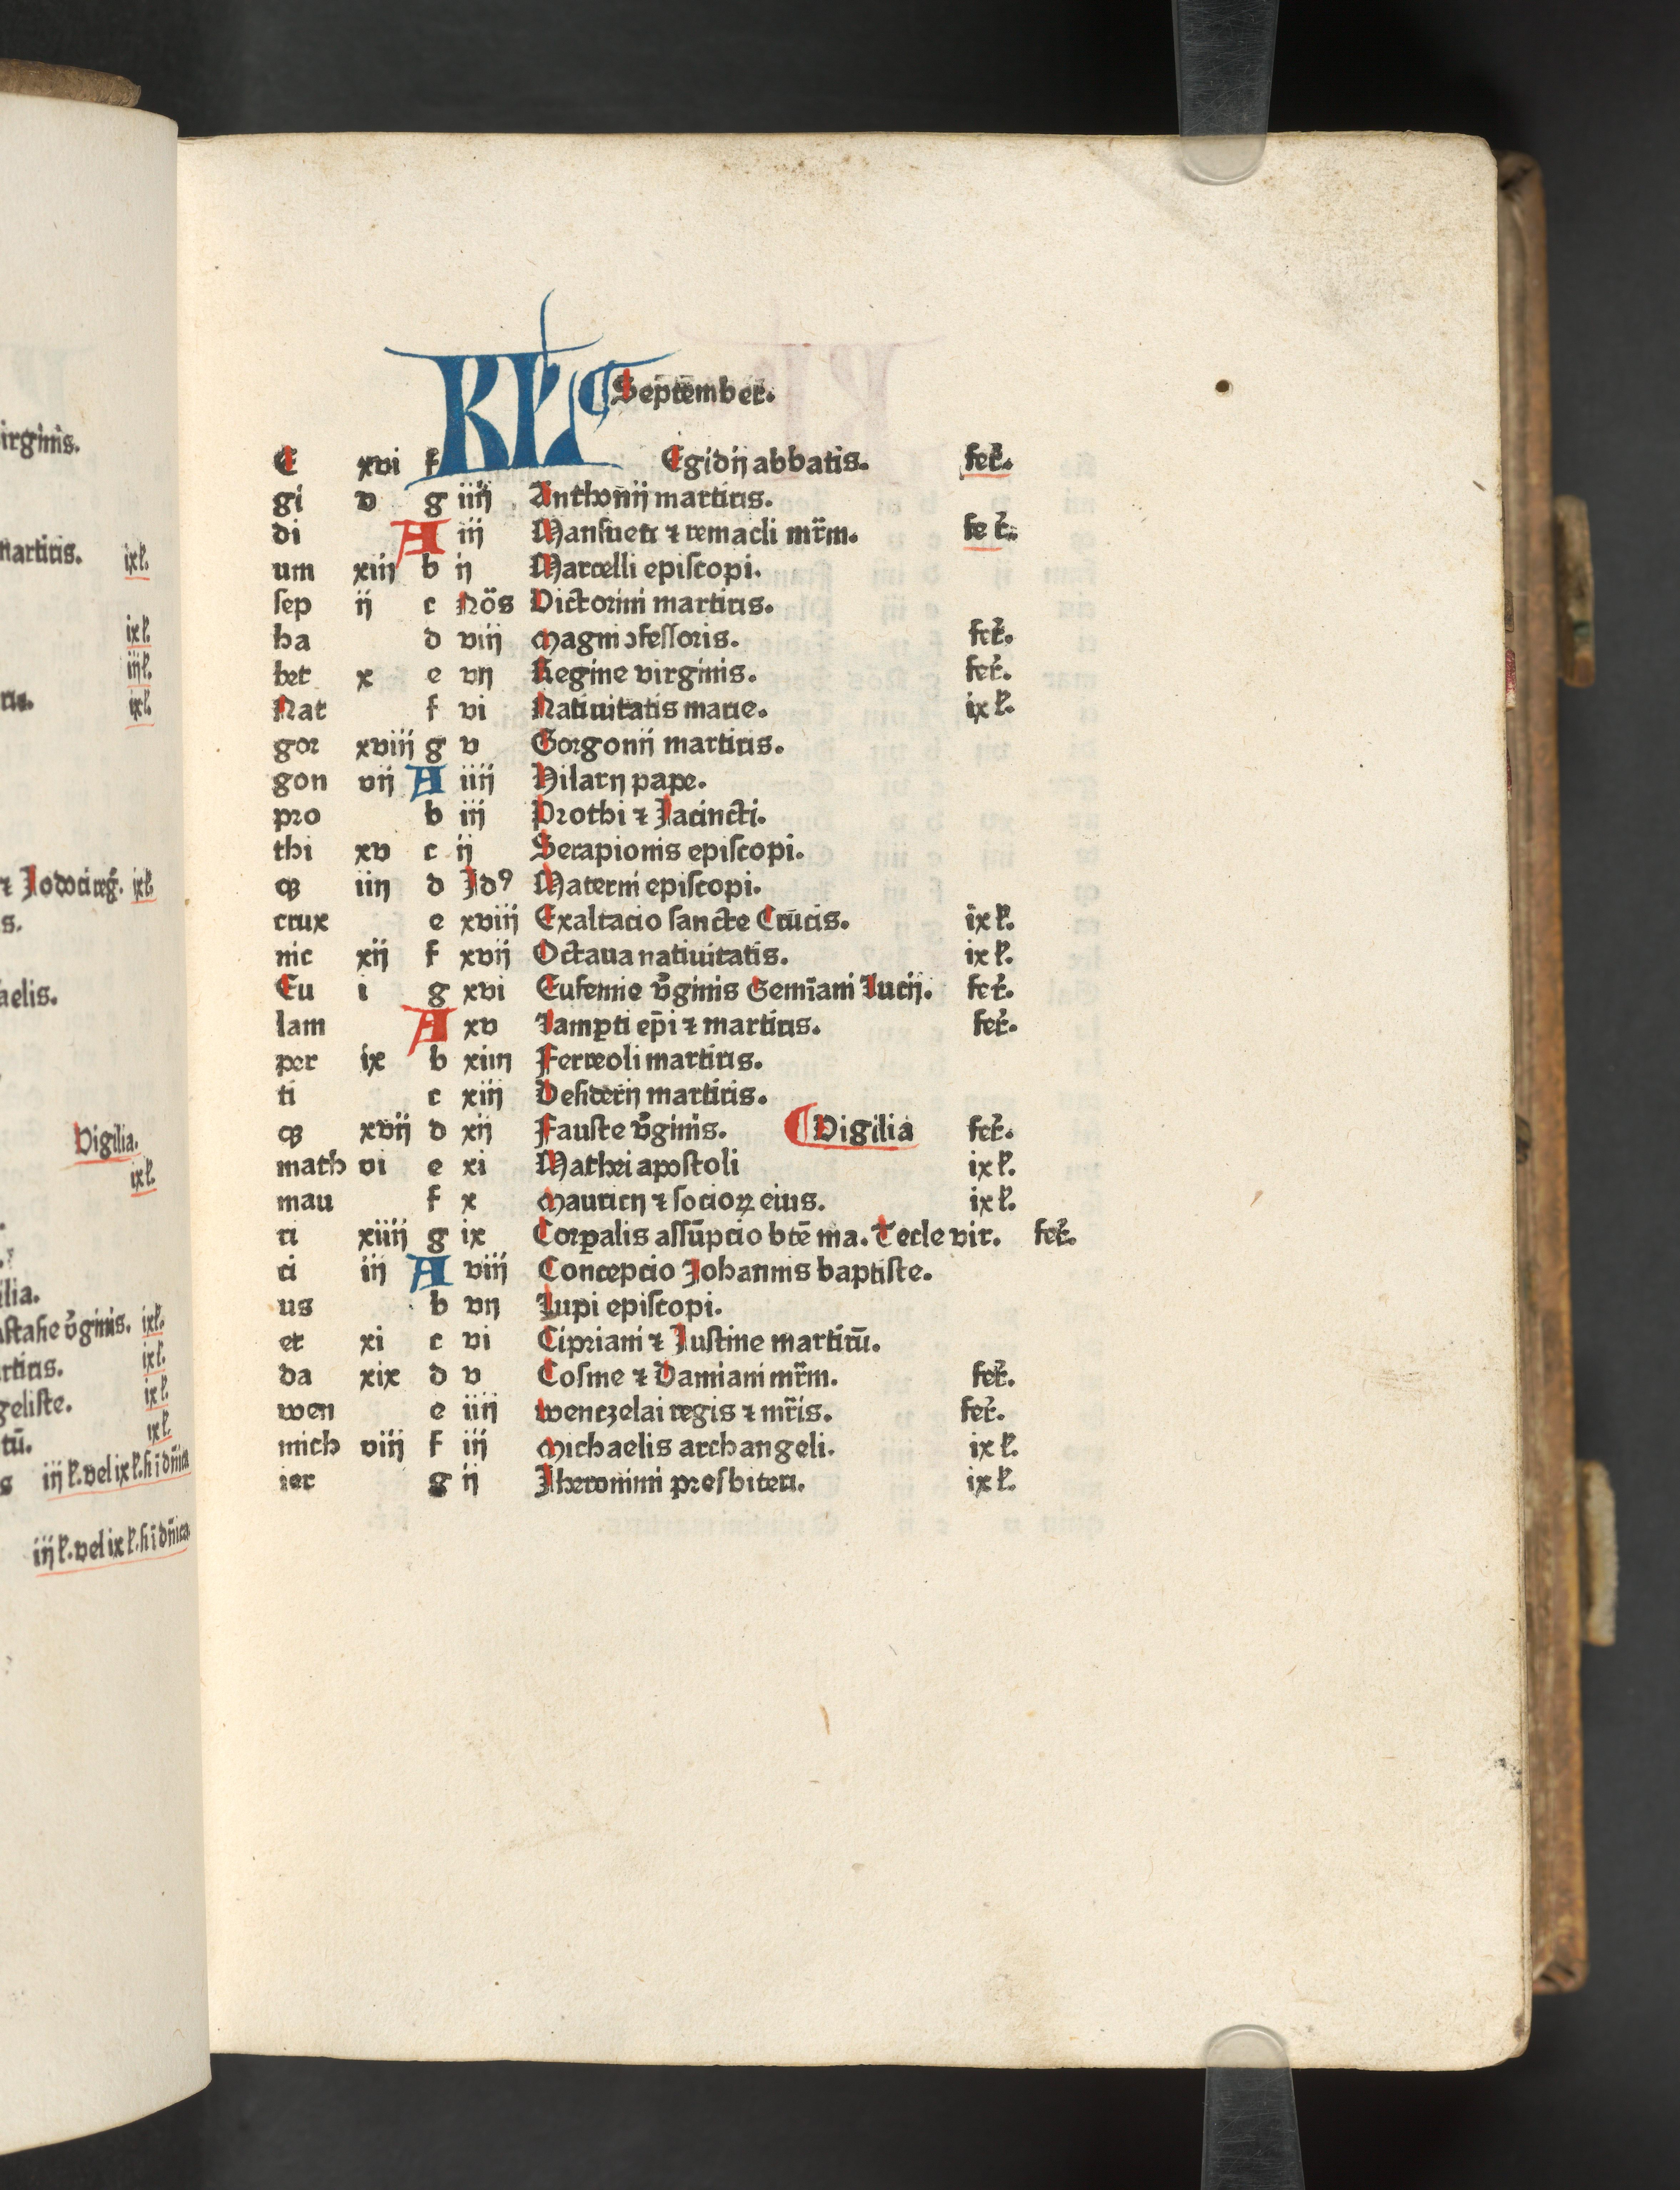 irginis.
martiris. ixł.
ixł.
iijł.
ixł.
⁊ Jodoci reg̃. ixł.
s.
aelis.
Vigilia.
ixł.
ilia.
astasie v̾ginis. ixł.
rtiris. ixł.
geliste. ixł.
tū. ixł.
s iij ł. vel ix ł. hī dn̄ica
iij ł. vel ix ł. hī dn̄ica
KL ¶ September.
E xvi f Egidij abbatis. fer̾.
gi v g iiij Anthonij martiris.
di A iij Mansueti ⁊ remacli mr̄m. fe r̾.
um xiij b ij Marcelli episcopi.
sep ij c Nōs Victorini martiris.
ha d viij magni ɔfessoris. fer̾.
bet x e vij Regine virginis. fer̾.
Nat f vi Natiuitatis marie. ix ł.
gor xviij g v Gorgonij martiris.
gon vij A iiij Hilarij pape.
pro b iij Prothi ⁊ Jacincti.
thi xv c ij Serapionis episcopi.
qꝫ iiij d Jdꝰ Materni episcopi.
crux e xviij Exaltacio sancte Crūcis. ix ł.
nic xij f xvij Octaua natiuitatis. ix ł.
Eu i g xvi Eufemie v̾ginis Gemīani lucij. fer̾.
lam A xv lamp̱ti ep̄i ⁊ martiris. fer̾.
per ix b xiiij Ferreoli martiris.
ti c xiij Desiderij martiris.
qꝫ xvij d xij Fauste v̾ginis. ¶ Vigilia fer̾.
math vi e xi Mathei apostoli ix ł.
mau f x mauricij ⁊ socioꝝ eius. ix ł.
ri xiiij g ix Corꝑalis assūpcio btē ma. Tecle vir. fer̾.
ci iij A viij Concepcio Johannis baptiste.
us b vij lupi episcopi.
et xi c vi Cipriani ⁊ Justine martirū.
da xix d v Cosme ⁊ Damiani mr̄m. fer̾.
wen e iiij wenczelai regis ⁊ mr̄is. fer̾.
mich viij f iij michaelis archangeli. ix ł.
ier g ij Jheronimi presbiteri. ix ł.